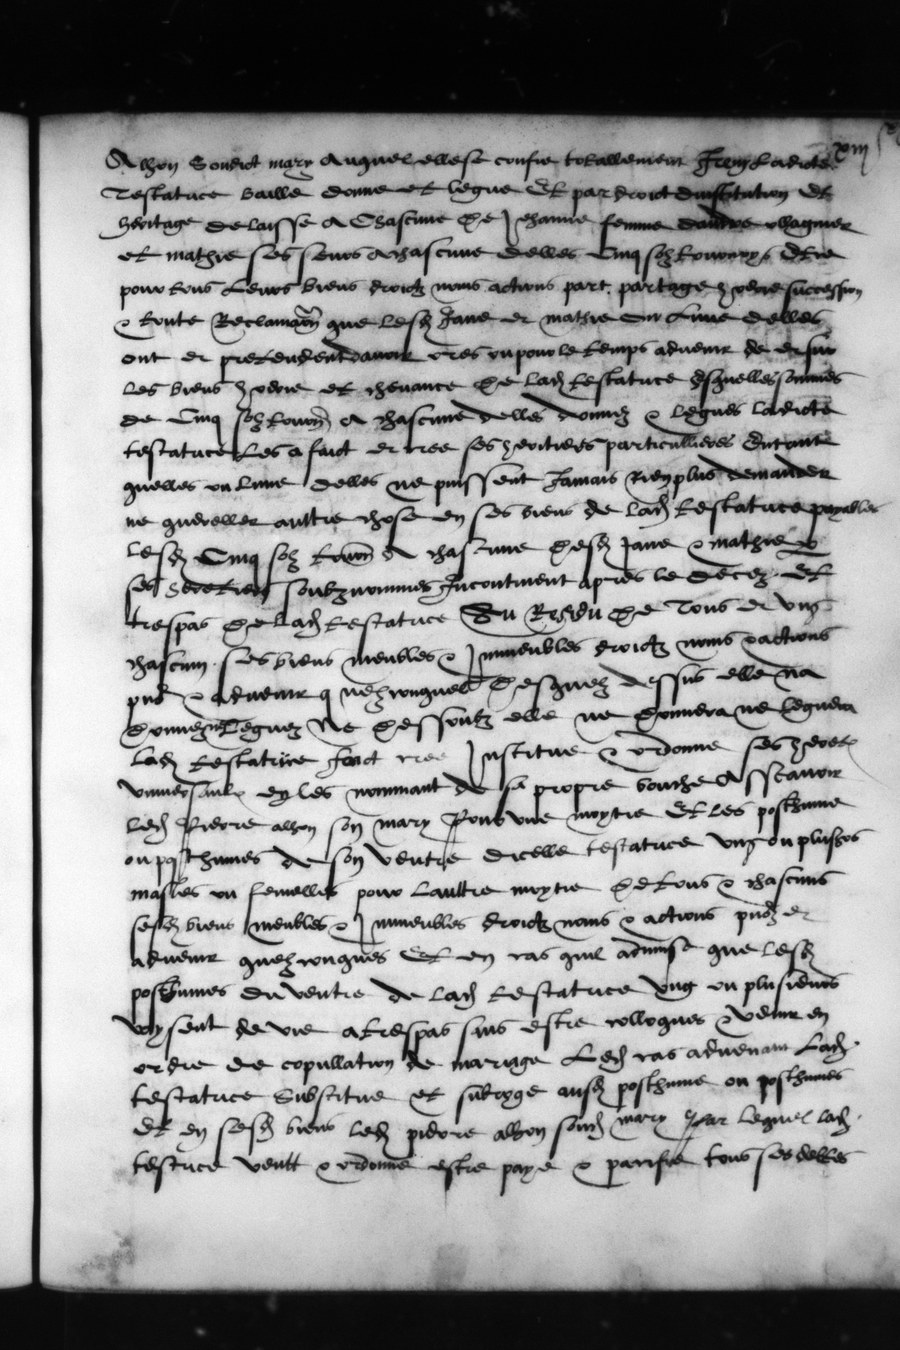 xiiij
Alhon sondict mary auquel elle se confie totallement Item ladicte
Testatrice baille donne et legue et par droict dinstitution et
heritage delaisse a chascune de Jehanne femme danthoe
et mathie ses seurs a chascune delles cinq solz tournoys
pour tous leurs biens droictz noms actions part partage herie succession
& toute reclamaon que lesd Jane et mathie ou lune delles
ont et pretendent davoir ores ou pour le temps advenir de et sur
les biens herie et chevance de lad testatrice desquelles sommes
de cinq solz tourn a chascune delles donnez & legues ladicte
testatrice les a faict et cree ses heritieres particullieres
quelles ou lune delles ne puissent Jamais rien plus demander
ne quereller aultre chose en ses biens de lad testatrice payables
lesd cinq solz tourn a chascune desd Jane & mathie
ses soubznommes Incontinent apres le decez et
trespas de lad testatrice Au Residu de tous et ung
chascun ses biens meubles & Immeubles droictz noms & actions
pns & advenir q desquelz dessus elle na
donne leguez ne dessoubz elle ne donnera ne leguera
lad testatrice faict cree Institue & ordonne ses herit
universaulx en les nommant de sa propre bouche Asscavoir
led pierre alhon son mary pour une moytie et les posthume
ou posthumes de son ventre dicelle testatrice ung ou plusrs
masles ou femelles pour laultre moytie de tous & chascuns
sesd biens meubles & Immeubles droictz noms & actions pns et
advenir quelzconques Et en cas quil advinse que lesd
posthumes du ventre de lad testatrice ung ou plusieurs
voysent de vie a trespas sans estre colloques & venir en
ordre de copullation de mariage Led cas advenant lad
testatrice substitue et subroge ausd posthume ou posthumes
et en sesd biens led pierre alhon sond mary par lequel lad
testrice veult & ordonne estre paye & parifre tous ses debtes